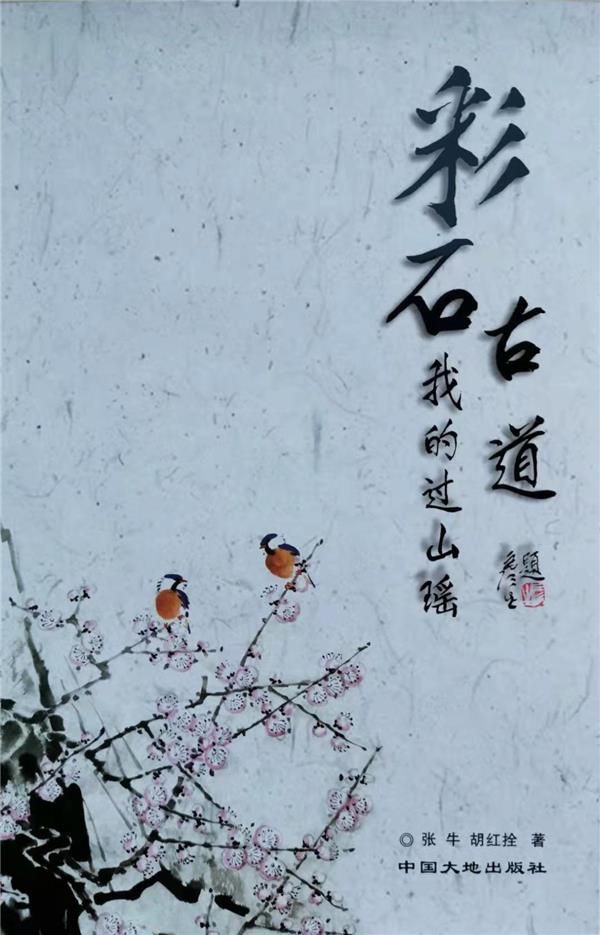 彩石
古道
我的过山瑶
题
◎ 张 牛 胡红拴 著
中国大地出版社